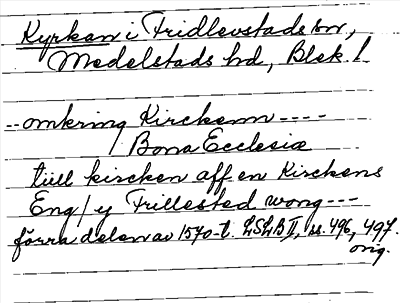 Kyrkan i Fridlevstads sn,
Medelstads hd, Blek. l.
-- omkring Kirckenn ----
Bona Ecclesiæ
till kircken aff en Kirckens
Eng / y Frillested wong ---
förra delen av 1570-t. LSLB II, ss. 496, 497.
orig.